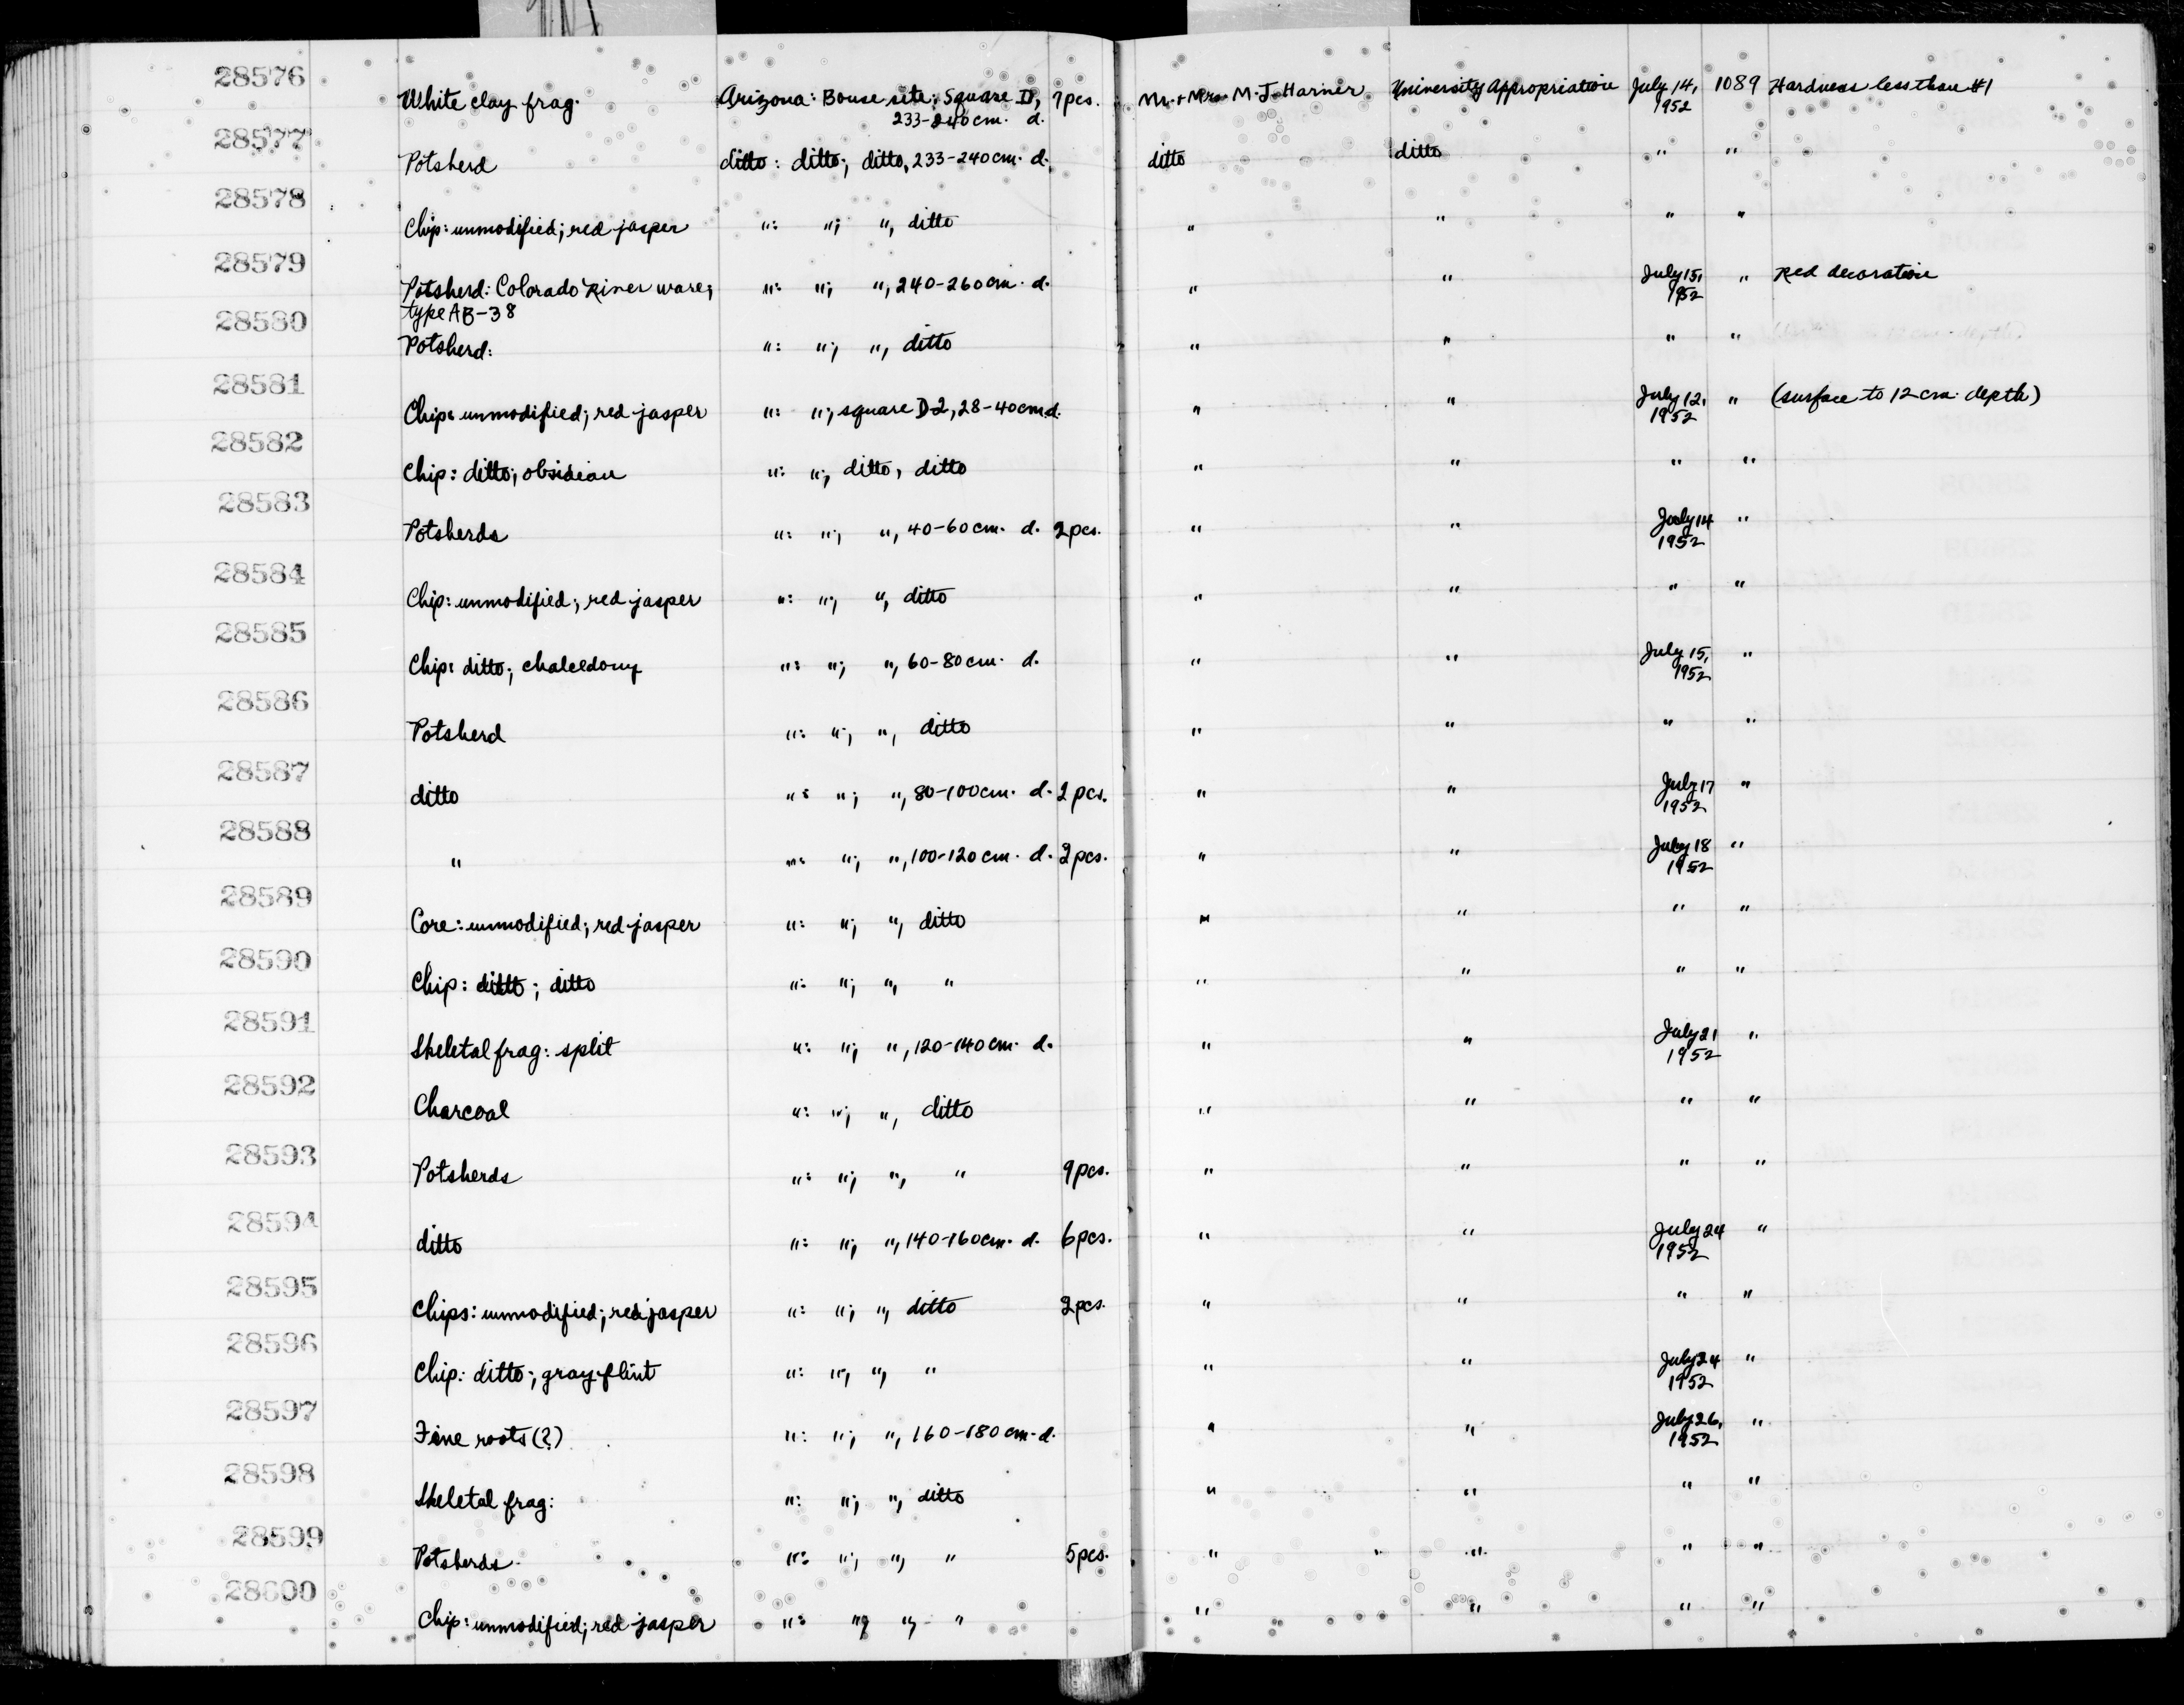 28576 White clay frag. Arizona: Bouse site; Square D, 7pcs. Mr. + Mrs. M. J. Harner University Appropriation July 14, 1089 Hardness less than #1
233-240cm. d. 1952
28577 Potsherd ditto: ditto; ditto, 233-240cm. d. ditto ditto " "
28578 Chip: unmodified; red jasper ": "; ", ditto " " " "
28579 Potsherd: Colorado River ware; ": "; ", 240-260cm. d. " " July 15, " Red decoration
type AB-38 1952
28580 Potsherd: ": "; ", ditto " " " "
28581 Chip: unmodified; red jasper ": "; square D-2, 28-40cm d. " " July 12, " (surface to 12 cm. depth)
1952
28582 Chip: ditto; obsidian ": "; ditto, ditto " " " "
28583 Potsherds ": "; ", 40-60cm. d. 2pcs. " " July 14 "
1952
28584 Chip: unmodified; red jasper ": "; ", ditto " " " "
28585 Chip: ditto; chalcedony ": "; ", 60-80cm. d. " " July 15, "
1952
28586 Potsherd ": "; ", ditto " " " "
28587 ditto ": "; ", 80-100cm. d. 2pcs. " " July 17 "
1952
28588 " ": "; ", 100-120cm. d. 2pcs. " " July 18 "
1952
28589 Core: unmodified; red jasper ": "; ", ditto " " " "
28590 Chip: ditto; ditto ": "; ", " " " " "
28591 Skeletal frag: split ": "; ", 120-140cm. d. " " July 21 "
1952
28592 Charcoal ": "; ", ditto " " " "
28593 Potsherds ": "; ", " 9pcs. " " " "
28594 ditto ": "; ", 140-160cm. d. 6pcs. " " July 24 "
1952
28595 Chips: unmodified; red jasper ": "; ", ditto 2pcs. " " " "
28596 Chip: ditto; gray flint ": "; ", " " " July 24 "
1952
28597 Fine roots (?) ": "; ", 160-180cm. d. " " July 26, "
1952
28598 Skeletal frag: ": "; ", ditto " " " "
28599 Potsherds ": "; ", " 5pcs. " " " "
28600 Chip: unmodified; red jasper ": "; ", " " " " "